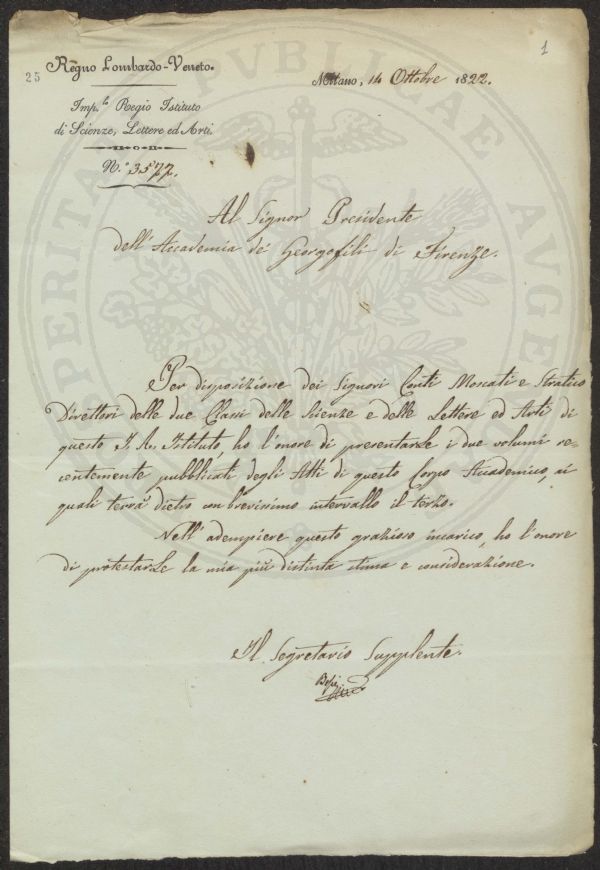 1
25
Regno Lombardo-Veneto.
Milano, 14 Ottobre 1822.
Imp.le Regio Istituto
di Scienze, Lettere ed Arti.
N.° 3577.
Al Signor Presidente
dell'Accademia de' Georgofili di Firenze.
Per disposizione dei Signori Conti Moscati e Stratico
Direttori delle due Classi delle Scienze e delle Lettere ed Arti di
questo I. R. Istituto, ho l'onore di presentarLe i due volumi re-
centemente pubblicati degli Atti di questo Corpo Accademico, ai
quali terrà dietro con brevissimo intervallo il terzo.
Nell'adempiere questo grazioso incarico, ho l'onore
di protestarLe la mia più distinta stima e considerazione.
Il Segretario Supplente.
PROSPERITATI PUBLICAE AUGENDAE